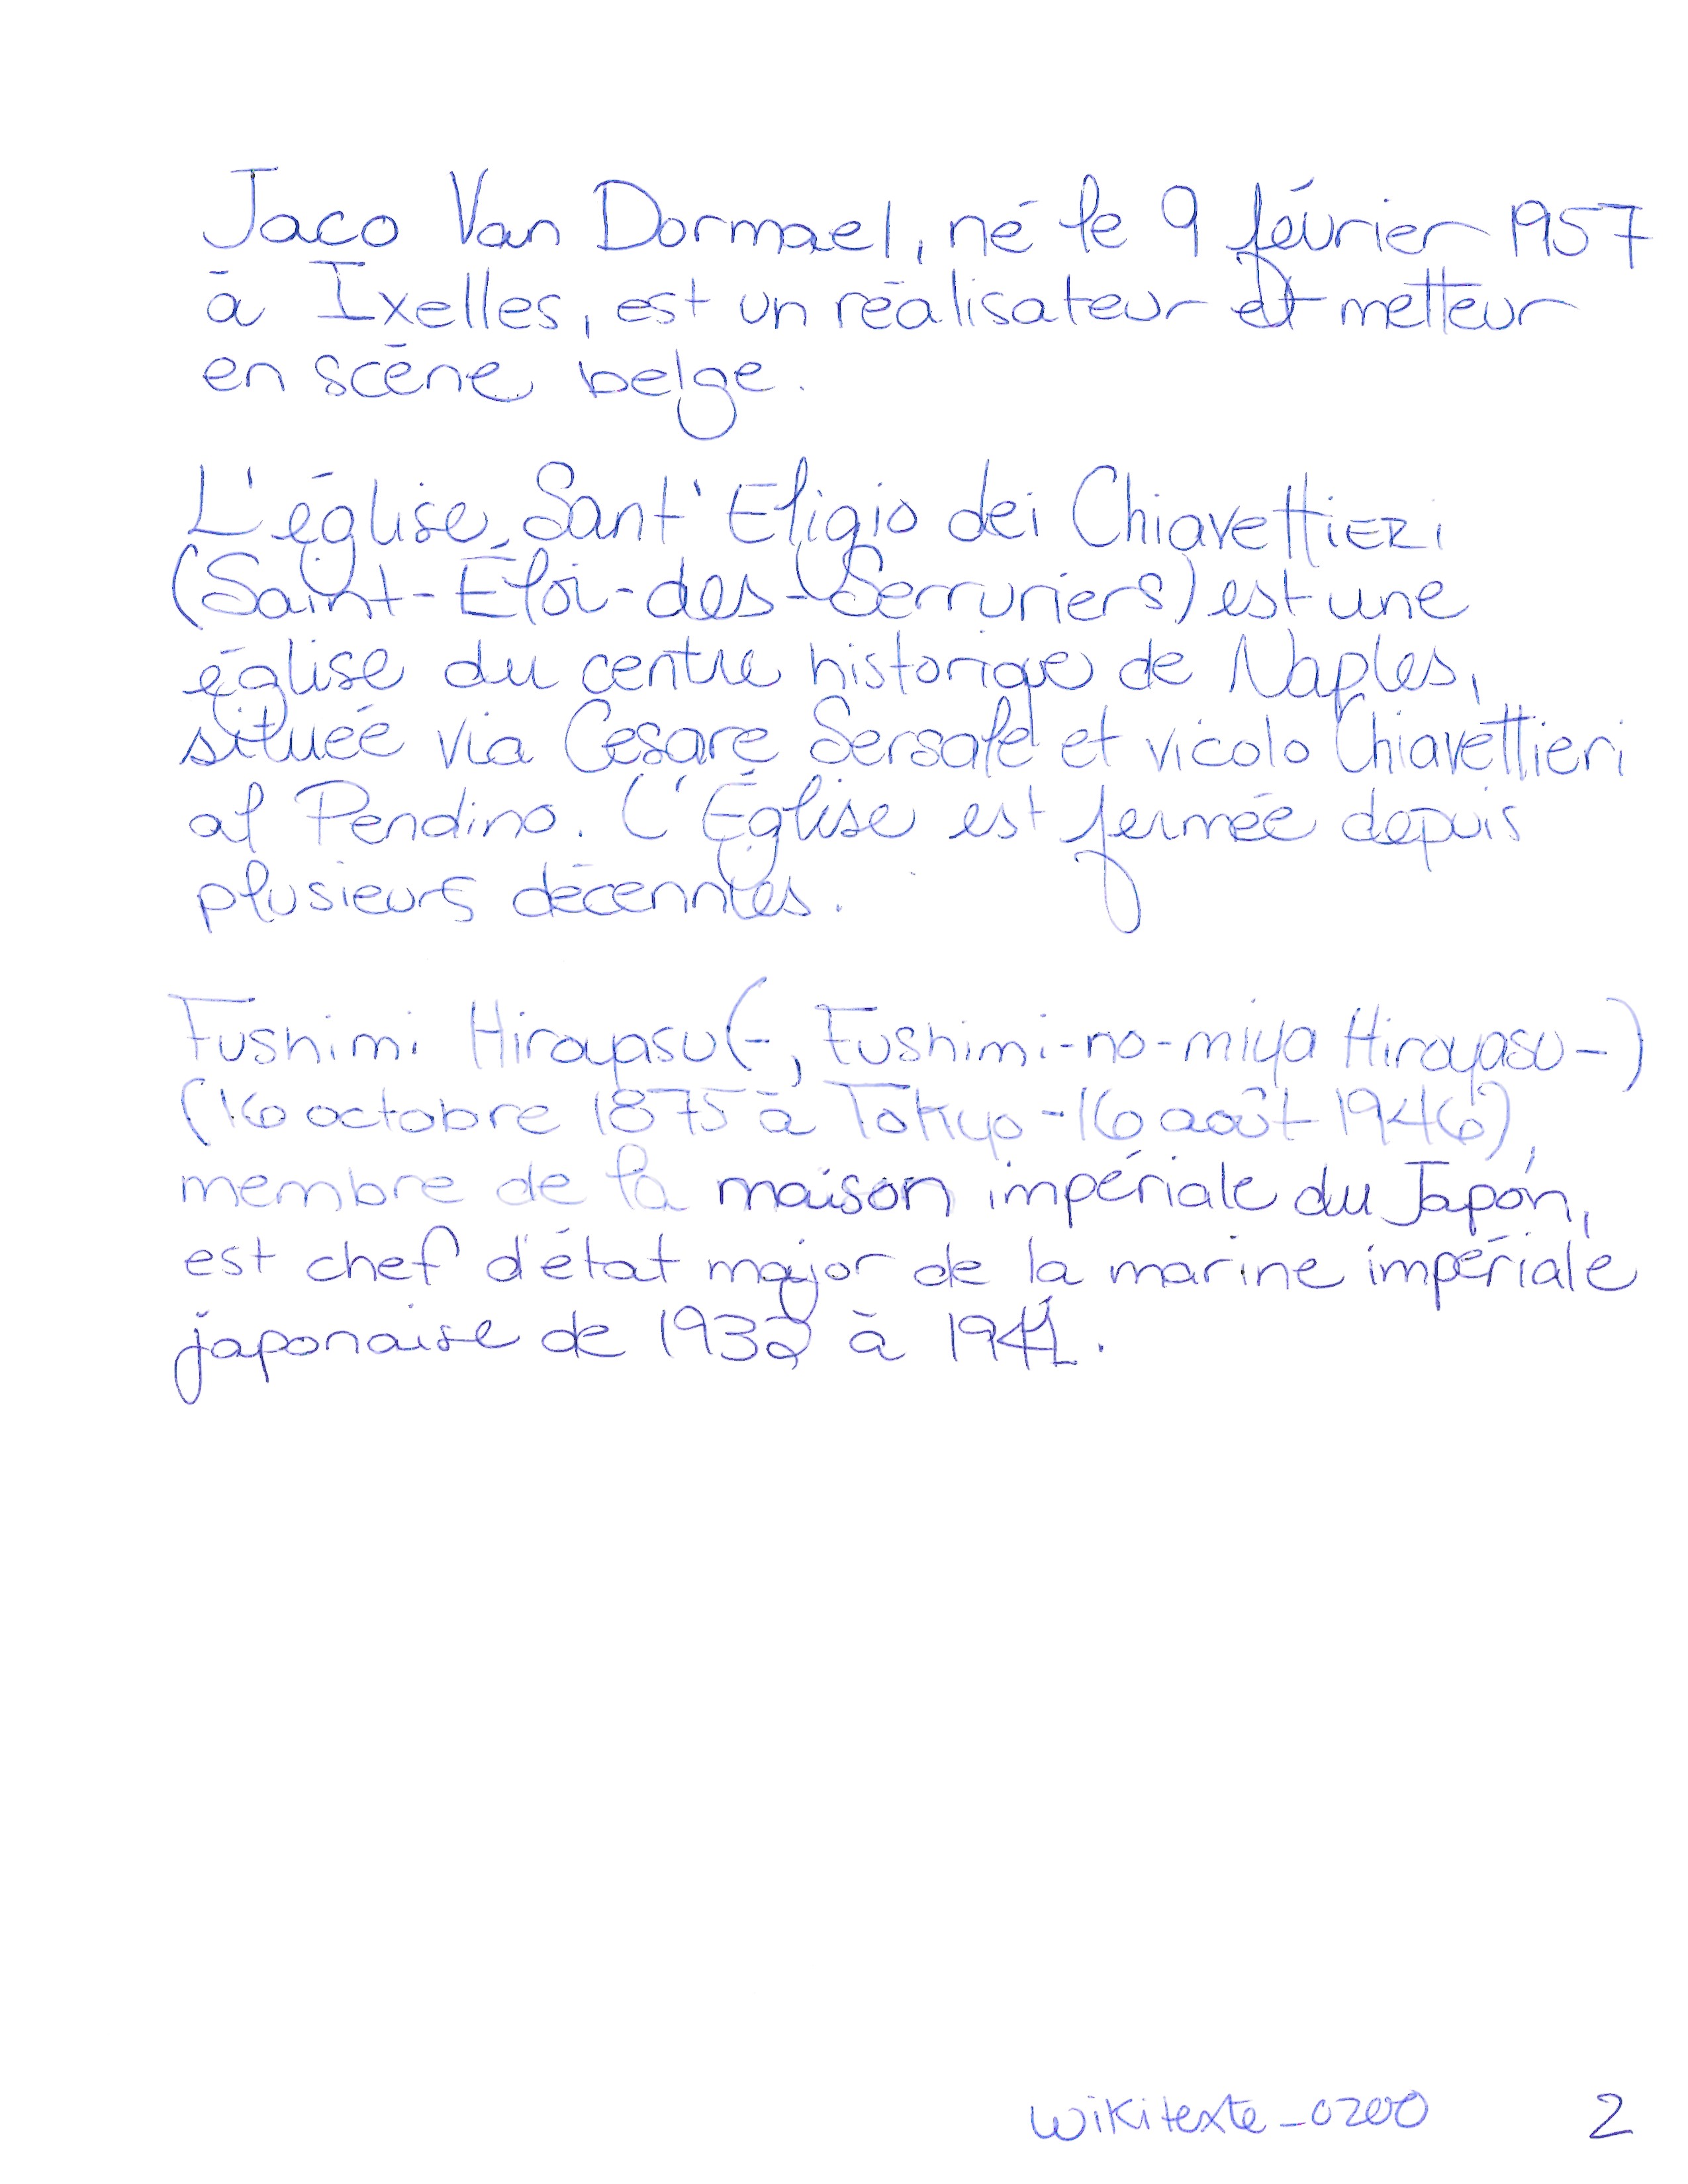 Jaco Van Dormael, né le 9 février 1957
à Ixelles, est un réalisateur et metteur
en scène belge.
L'église Sant'Eligio dei Chiavettieri
(Saint-Éloi-des-Serruriers) est une
église du centre historique de Naples,
située via Cesare Sersale et vicolo Chiavettieri
al Pendino. L'Église est fermée depuis
plusieurs décennies.
Fushimi Hiroyasu (-, Fushimi-no-miya Hiroyasu -)
(16 octobre 1875 à Tokyo - 16 août 1946),
membre de la maison impériale du Japon,
est chef d'état major de la marine impériale
japonaise de 1932 à 1941.
Wikitexte_0200 2